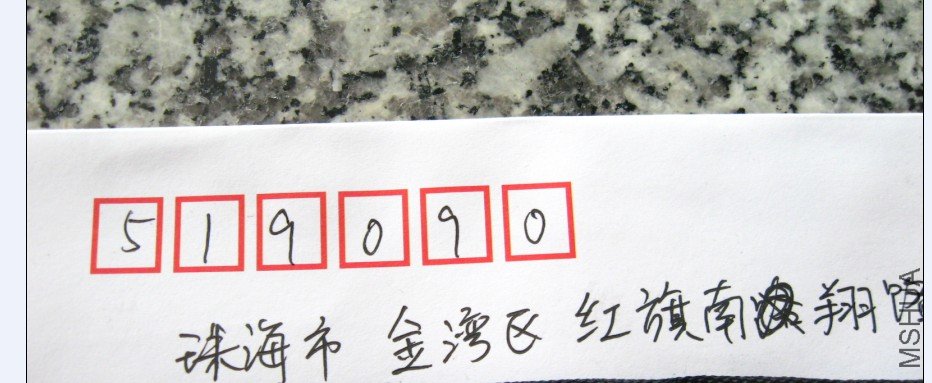 519090
珠海市 金湾区 红旗南翔路
MSHUA